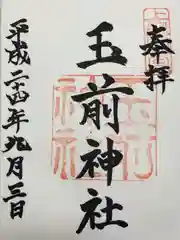 奉拝
玉前神社
平成二十四年九月三日